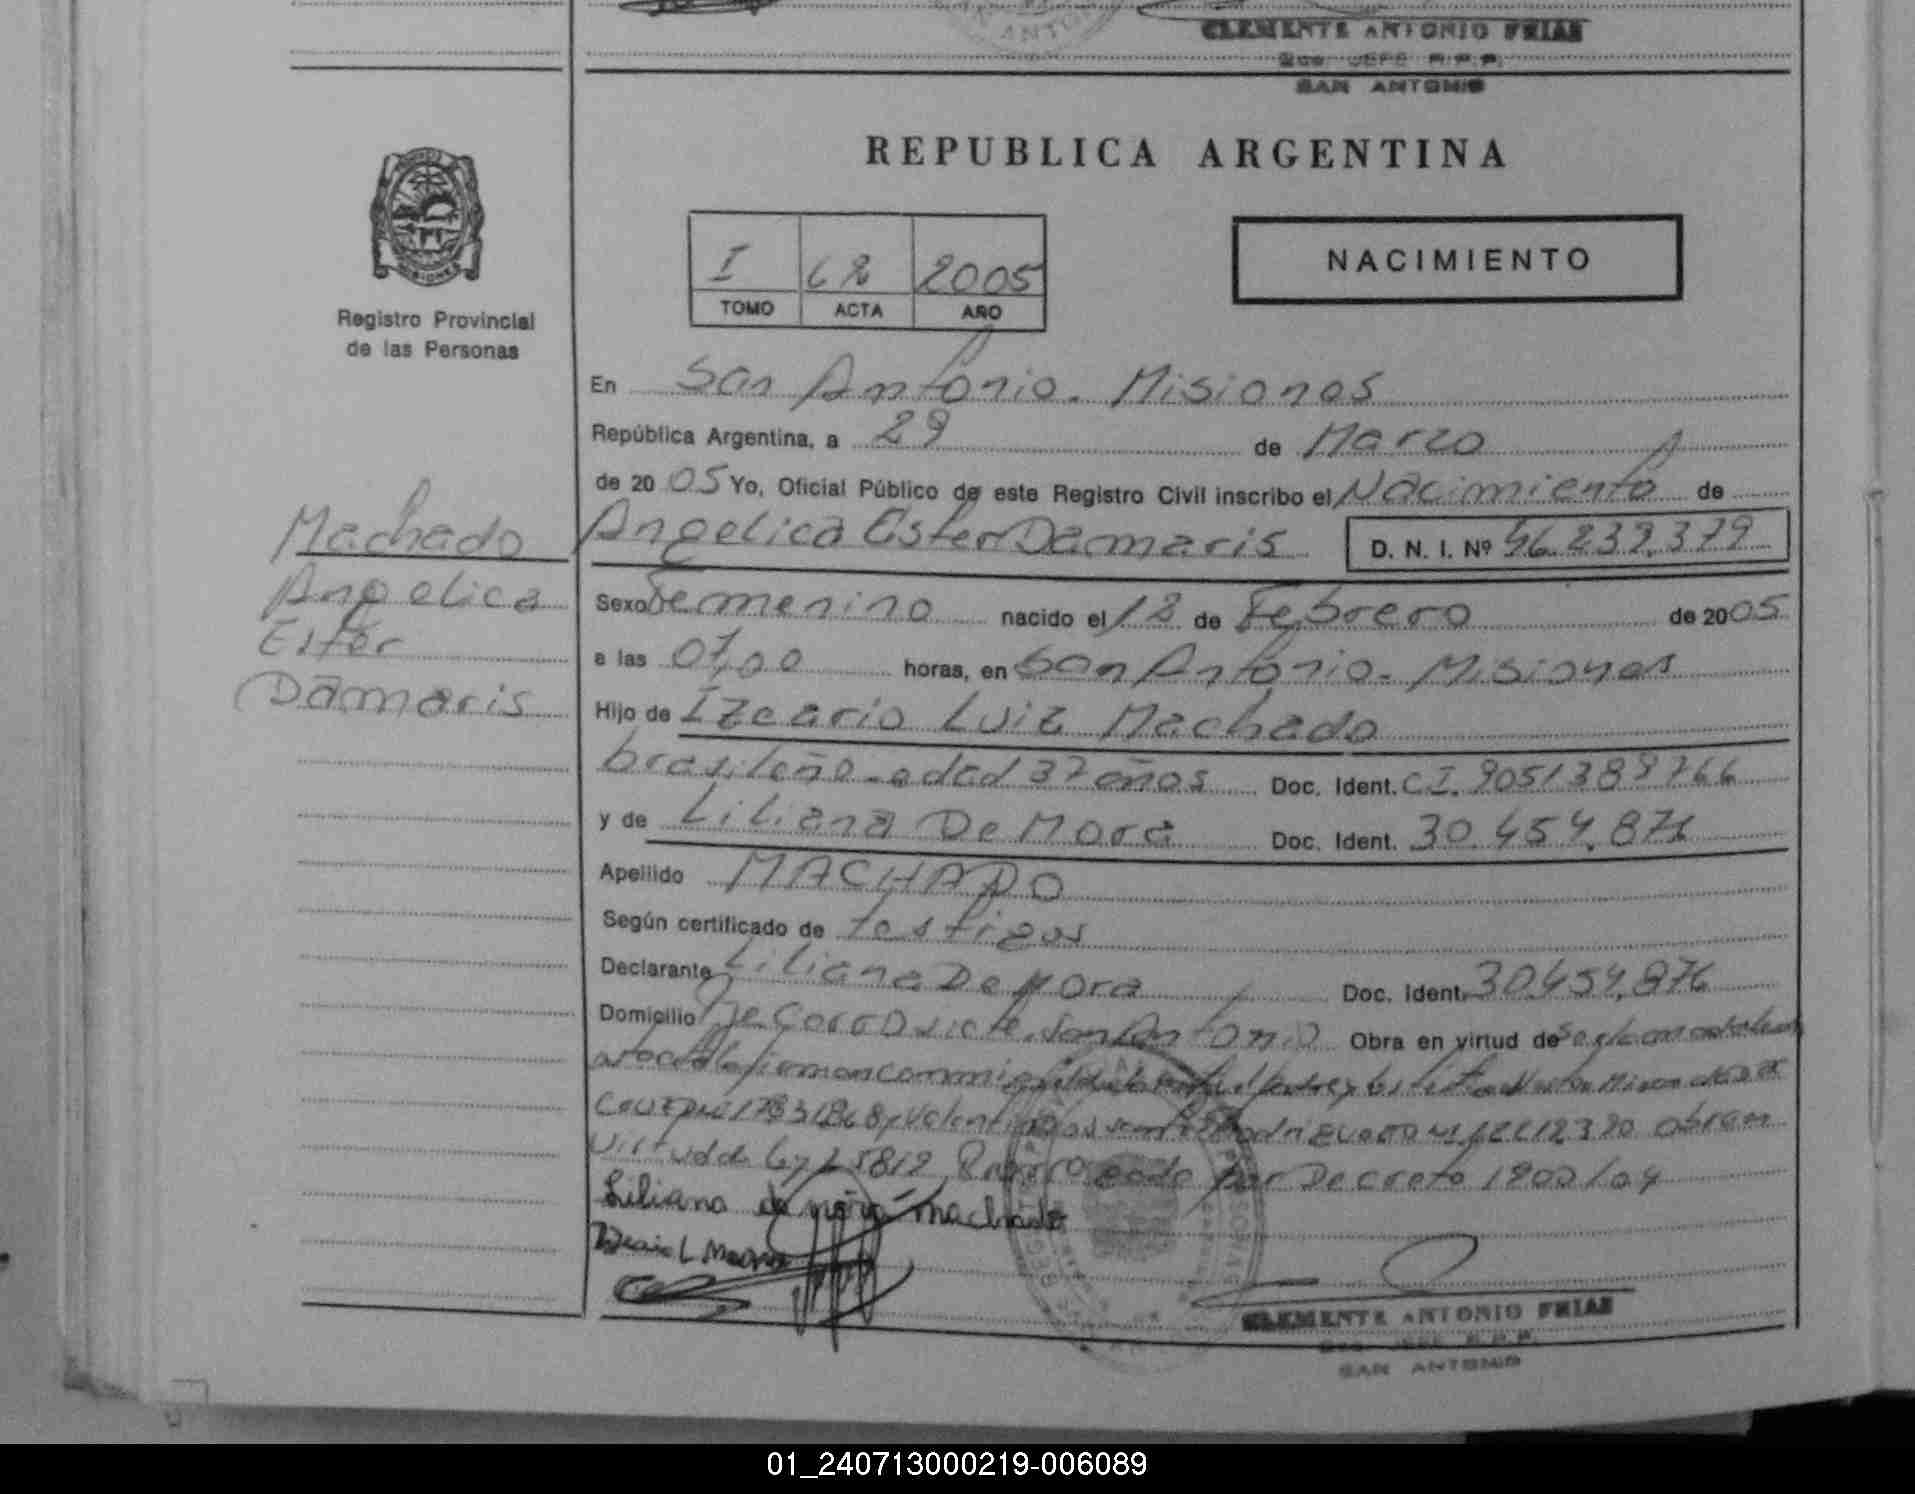 CLEMENTE ANTONIO FRIAS
SAN ANTONIO
REPUBLICA ARGENTINA
MISIONES
Registro Provincial
de las Personas
I 62 2005
TOMO ACTA AÑO
NACIMIENTO
En San Antonio. Misiones
República Argentina, a 29 de Marzo
de 2005 Yo, Oficial Público de este Registro Civil inscribo el Nacimiento de
Angelica Ester Damaris D. N. I. Nº 46.239.379
Machado
Angelica
Ester
Damaris
Sexo Femenino nacido el 12 de Febrero de 2005
a las 07,00 horas, en San Antonio. Misiones
Hijo de Izeario Luiz Machado
brasileño - edad 37 años Doc. Ident. C.I. 9051389766
y de Liliana De Mora Doc. Ident. 30.454.876
Apellido MACHADO
Según certificado de testigos
Declarante Liliana De Mora Doc. Ident. 30.454.876
Domicilio San Antonio Obra en virtud de
Obra en
Virtud de Prorrogado por Decreto 1900/04
Liliana de mora machado
CLEMENTE ANTONIO FRIAS
SAN ANTONIO
01_240713000219-006089